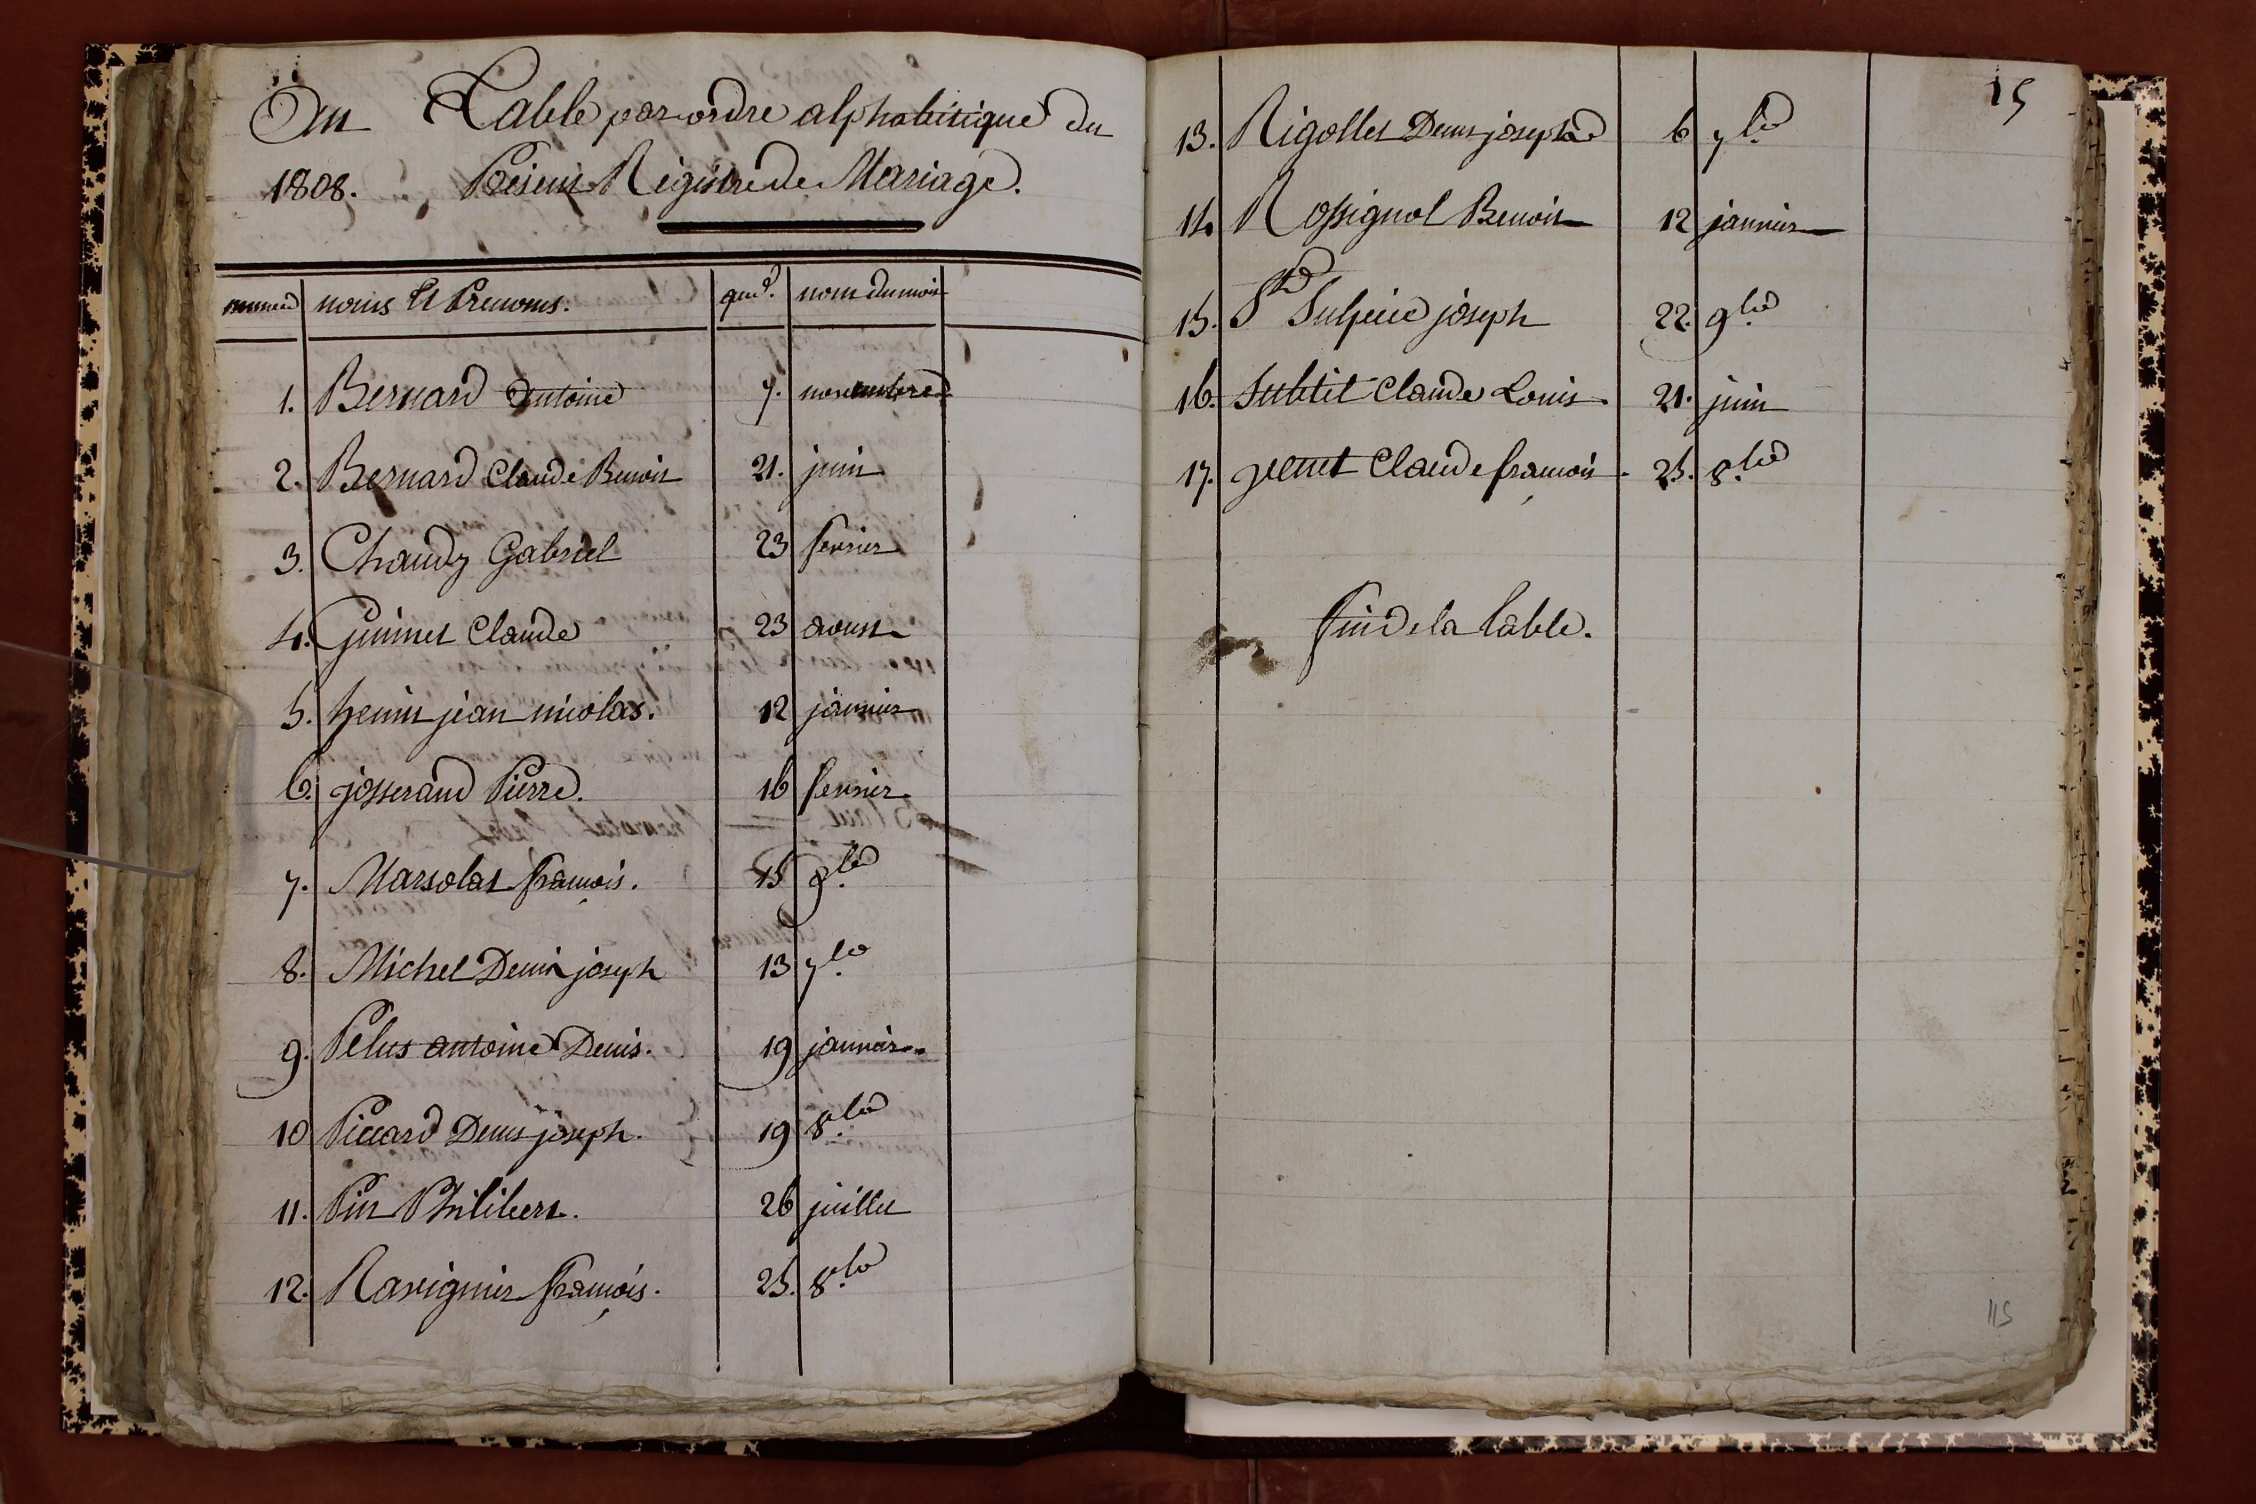 An Table par ordre alphabétique du
1808. Présent Régistre de Mariage.
numero noms Et Prenoms. quē. nom du mois
1. Bernard antoine 7. novembre
2. Bernard Claude Benoit 21. juin
3. Chaudy Gabriel 23 fevrier
4. Guinet Claude 23 aoust
5. henin jean nicolas. 12 janvier
6. josserand Pierre. 16 fevrier
7. Marsolat françois. 15 9.bre
8. Michel Denis joseph 13 7.bre
9. Pelus antoine Denis. 19 janvier
10 Piccard Denis joseph. 19 8.bre
11. Pin Philibert. 26 juillet
12. Ravignier françois. 25. 8.bre
15
13. Rigollet Denis joseph 6 7.bre
14. Rossignol Benoit 12 janvier
15. St Sulpice joseph 22. 9.bre
16. Subtil Claude Louis. 21. juin
17. yenet Claude françois. 25. 8.bre
fin de la Table.
115